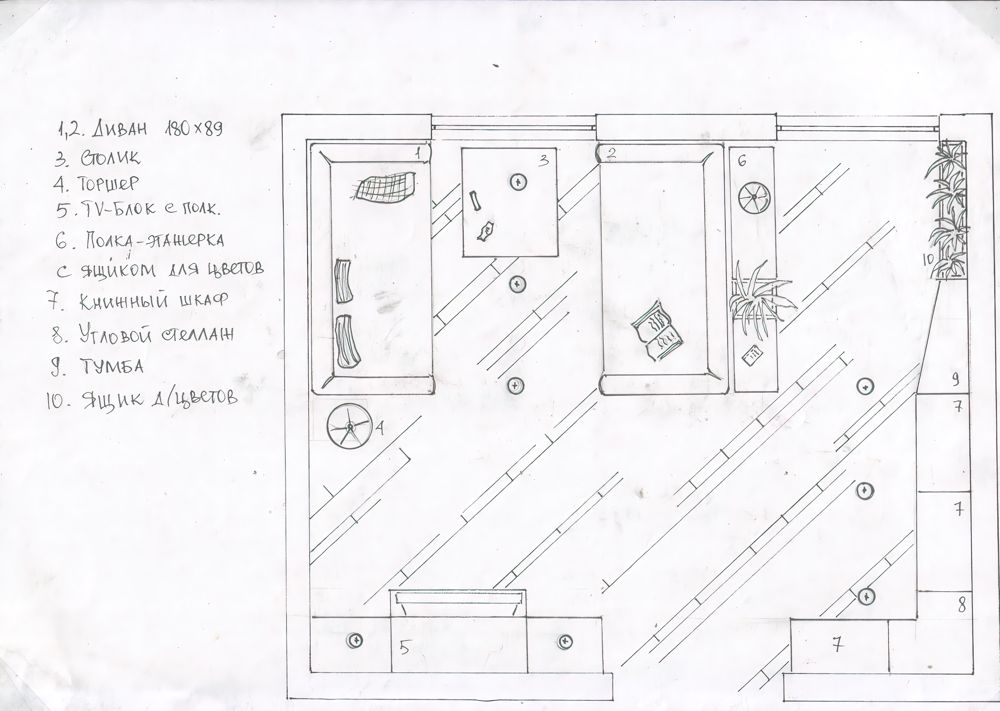 1,2. Диван 180×89
3. Столик
4. Торшер
5. TV-блок с полк.
6. Полка-этажерка
с ящиком для цветов
7. Книжный шкаф
8. Угловой стеллаж
9. Тумба
10. Ящик д/цветов
1
3
2
6
10
4
9
7
7
8
5
7